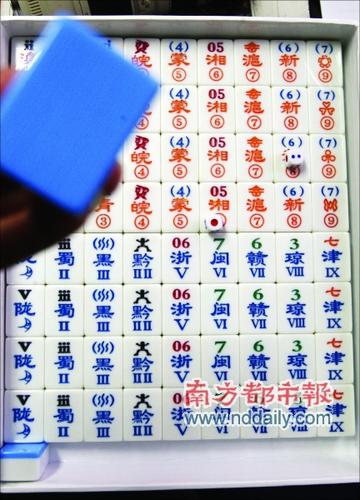 (4) 05 (6) (7)
皖 蒙 湘 滬 新
④ ⑤ ⑥ ⑦ ⑧ ⑨
(4) 05 (6) (7)
皖 蒙 湘 滬 新
④ ⑤ ⑥ ⑦ ⑧ ⑨
(4) 05 (6) (7)
皖 蒙 湘 滬 新
④ ⑤ ⑥ ⑦ ⑧ ⑨
(4) 05 (6) (7)
青 皖 蒙 湘 滬 新
③ ④ ⑤ ⑥ ⑦ ⑧ ⑨
06 7 6 3 七
陇 蜀 黑 黔 浙 闽 赣 琼 津
II III V VI VII VIII IX
06 7 6 3 七
陇 蜀 黑 黔 浙 闽 赣 琼 津
II III V VI VII VIII IX
06 7 6 3 七
陇 蜀 黑 黔 浙 闽 赣 琼 津
II III V VI VII VIII IX
06 7 6 3 七
陇 蜀 黑 黔 浙 闽 赣 琼 津
II III V VI VII VIII IX
南方都市報
www.nddaily.com